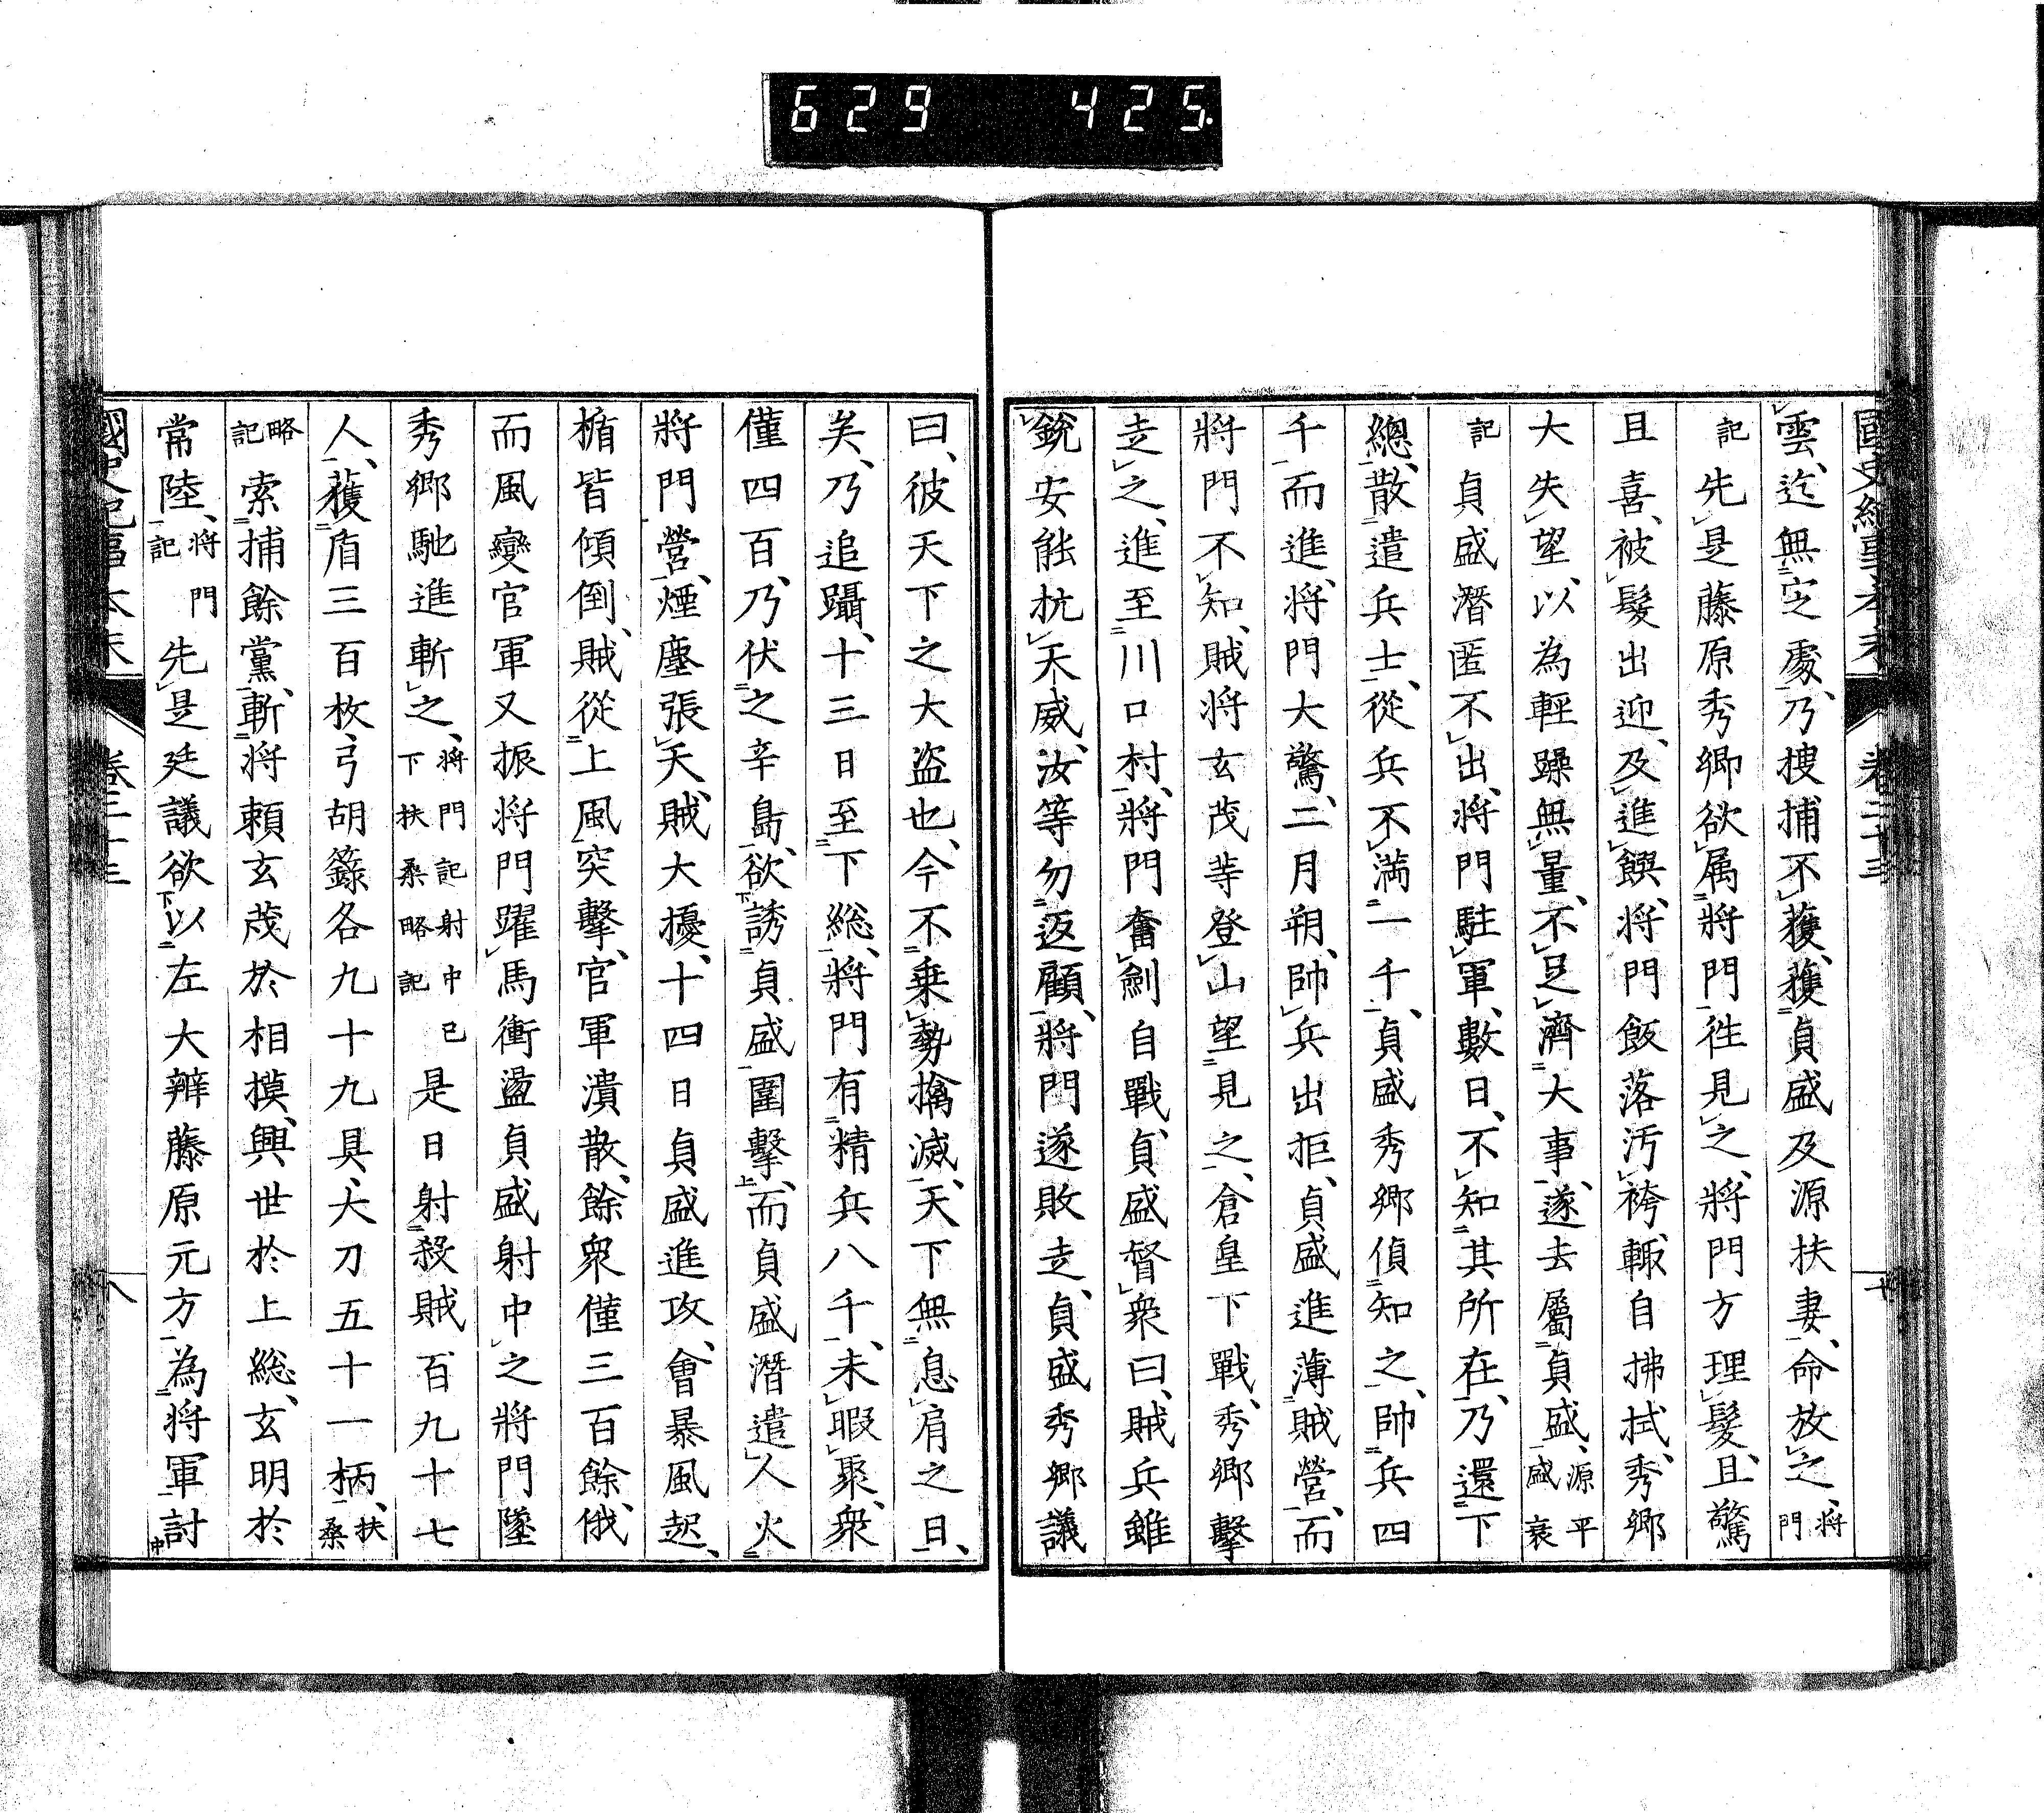 629 425
國史紀事本末 卷二十三
雲、迄無定處、乃搜捕不獲、獲貞盛及源扶妻、命放之、將門
記先是藤原秀郷欲属將門往見之、將門方理髮、且驚
且喜、被髮出迎、及進饌、將門飯落汚袴、輙自拂拭、秀郷
大失望、以為輕躁無量、不足濟大事、遂去屬貞盛、源平盛衰
記貞盛潛匿不出、將門駐軍、數日、不知其所在、乃還下
總、散遣兵士、從兵不滿一千、貞盛秀郷偵知之、帥兵四
千而進、將門大驚、二月朔、帥兵出拒、貞盛進薄賊營、而
將門不知、賊將玄茂等登山望見之、倉皇下戰、秀郷擊
走之、進至川口村、將門奮劍自戰、貞盛督衆曰、賊兵雖
銳安能抗天威、汝等勿返顧、將門遂敗走、貞盛秀郷議
曰、彼天下之大盜也、今不乗勢擒滅、天下無息肩之日、
矣、乃追躡、十三日至下総、將門有精兵八千、未暇聚、衆
僅四百、乃伏之辛島、欲誘貞盛圍擊、而貞盛潛遣人火
將門營、煙塵張天、賊大擾、十四日貞盛進攻、會暴風起、
楯皆傾倒、賊從上風突擊、官軍潰散、餘衆僅三百餘、俄
而風變官軍又振將門躍馬衝盪貞盛射中之將門墜
秀郷馳進斬之、將門記射中已下扶桑略記是日射殺賊百九十七
人、獲盾三百枚、弓胡籙各九十九具、大刀五十一柄、扶桑
略記索捕餘黨、斬將頼玄茂於相摸、興世於上総、玄明於
常陸、將門記先是廷議欲以左大辨藤原元方為將軍討
國史紀事本末 卷二十三 八